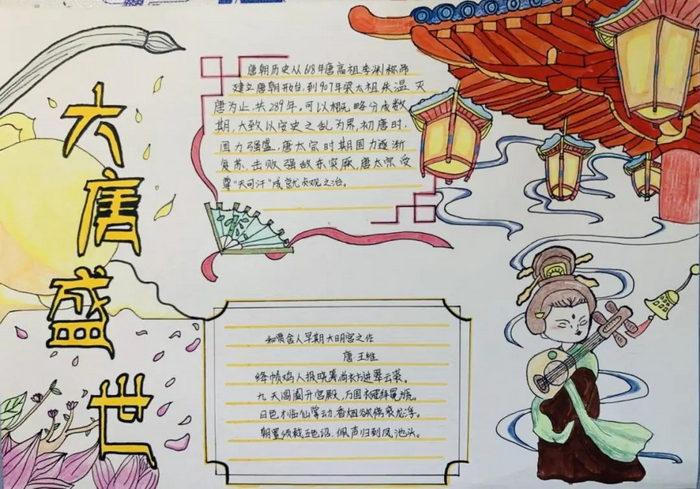 大唐盛世
唐朝历史从618年唐高祖李渊称帝
建立唐朝开始,到907年梁太祖朱温 灭
唐为止,共289年。可以粗略分成数
期,大致以安史之乱为界,初唐时,
国力强盛,唐太宗时期国力逐渐
复苏,击败强敌东突厥,唐太宗受
尊"天可汗"成就贞观之治。
和贾舍人早朝大明宫之作
唐 王维
绛帻鸡人报晓筹,尚衣方进翠云裘。
九天阊阖开宫殿,万国衣冠拜冕旒。
日色才临仙掌动,香烟欲傍衮龙浮。
朝罢须裁五色诏,佩声归到凤池头。